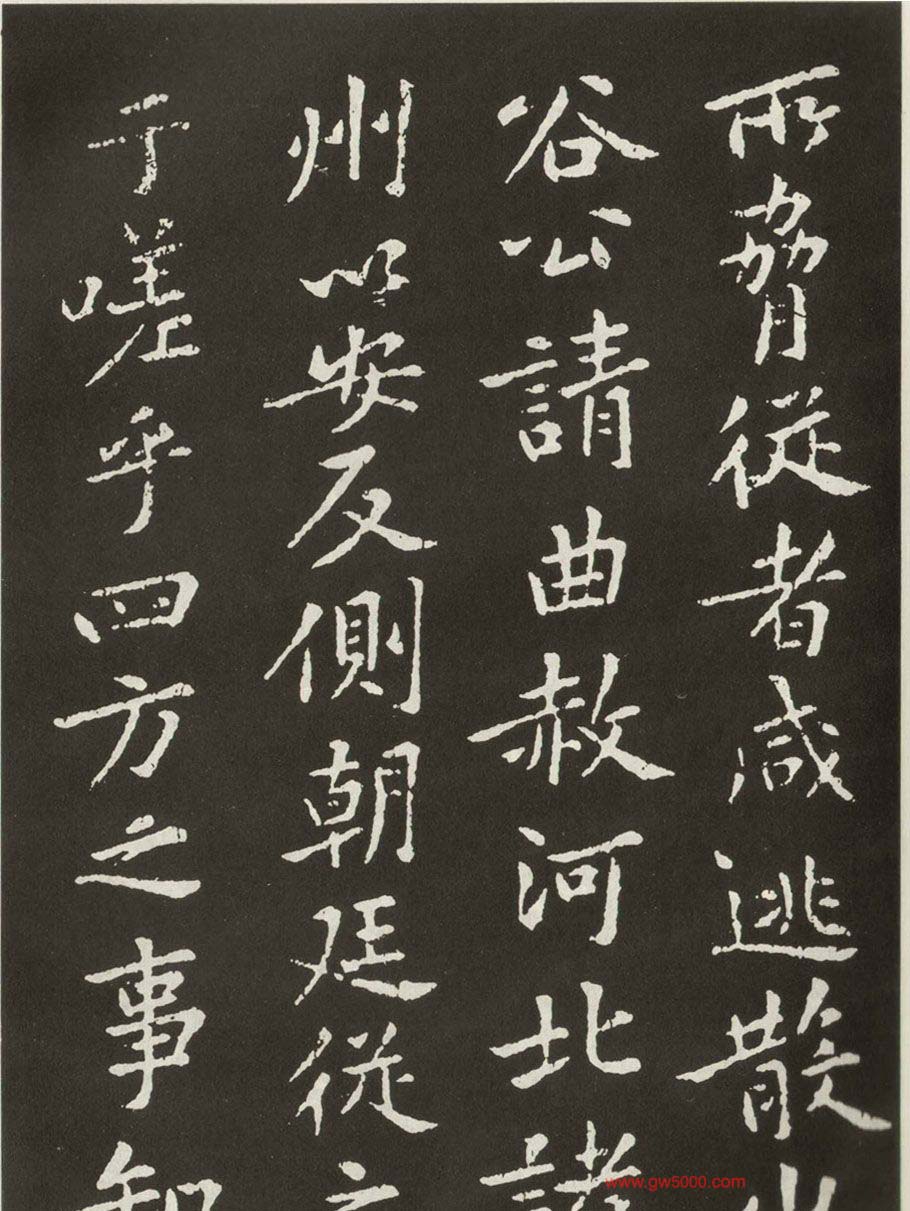 所脅從者咸逃散山
谷公請曲赦河北諸
州以安反側朝廷從之
于嗟乎四方之事知
www.gw5000.com